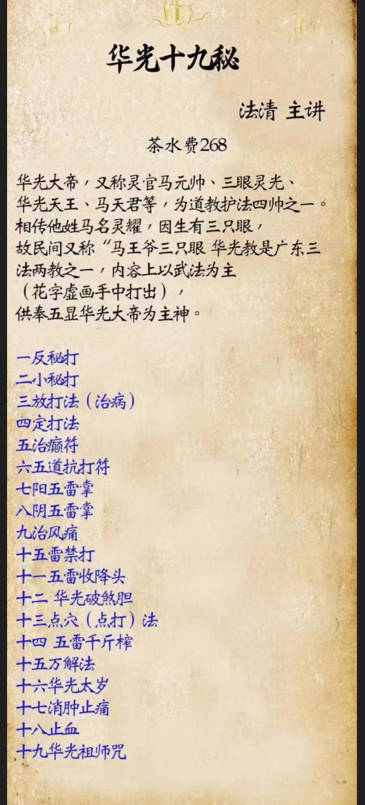 华光十九秘
法清 主讲
茶水费268
华光大帝，又称灵官马元帅、三眼灵光、
华光天王、马天君等，为道教护法四帅之一。
相传他姓马名灵耀，因生有三只眼，
故民间又称“马王爷三只眼 华光教是广东三
法两教之一，内容上以武法为主
（花字虚画手中打出），
供奉五显华光大帝为主神。
一反秘打
二小秘打
三放打法（治病）
四定打法
五治癫符
六五道抗打符
七阳五雷掌
八阴五雷掌
九治风痛
十五雷禁打
十一五雷收降头
十二 华光破煞胆
十三点穴（点打）法
十四 五雷千斤榨
十五万解法
十六华光太岁
十七消肿止痛
十八止血
十九华光祖师咒